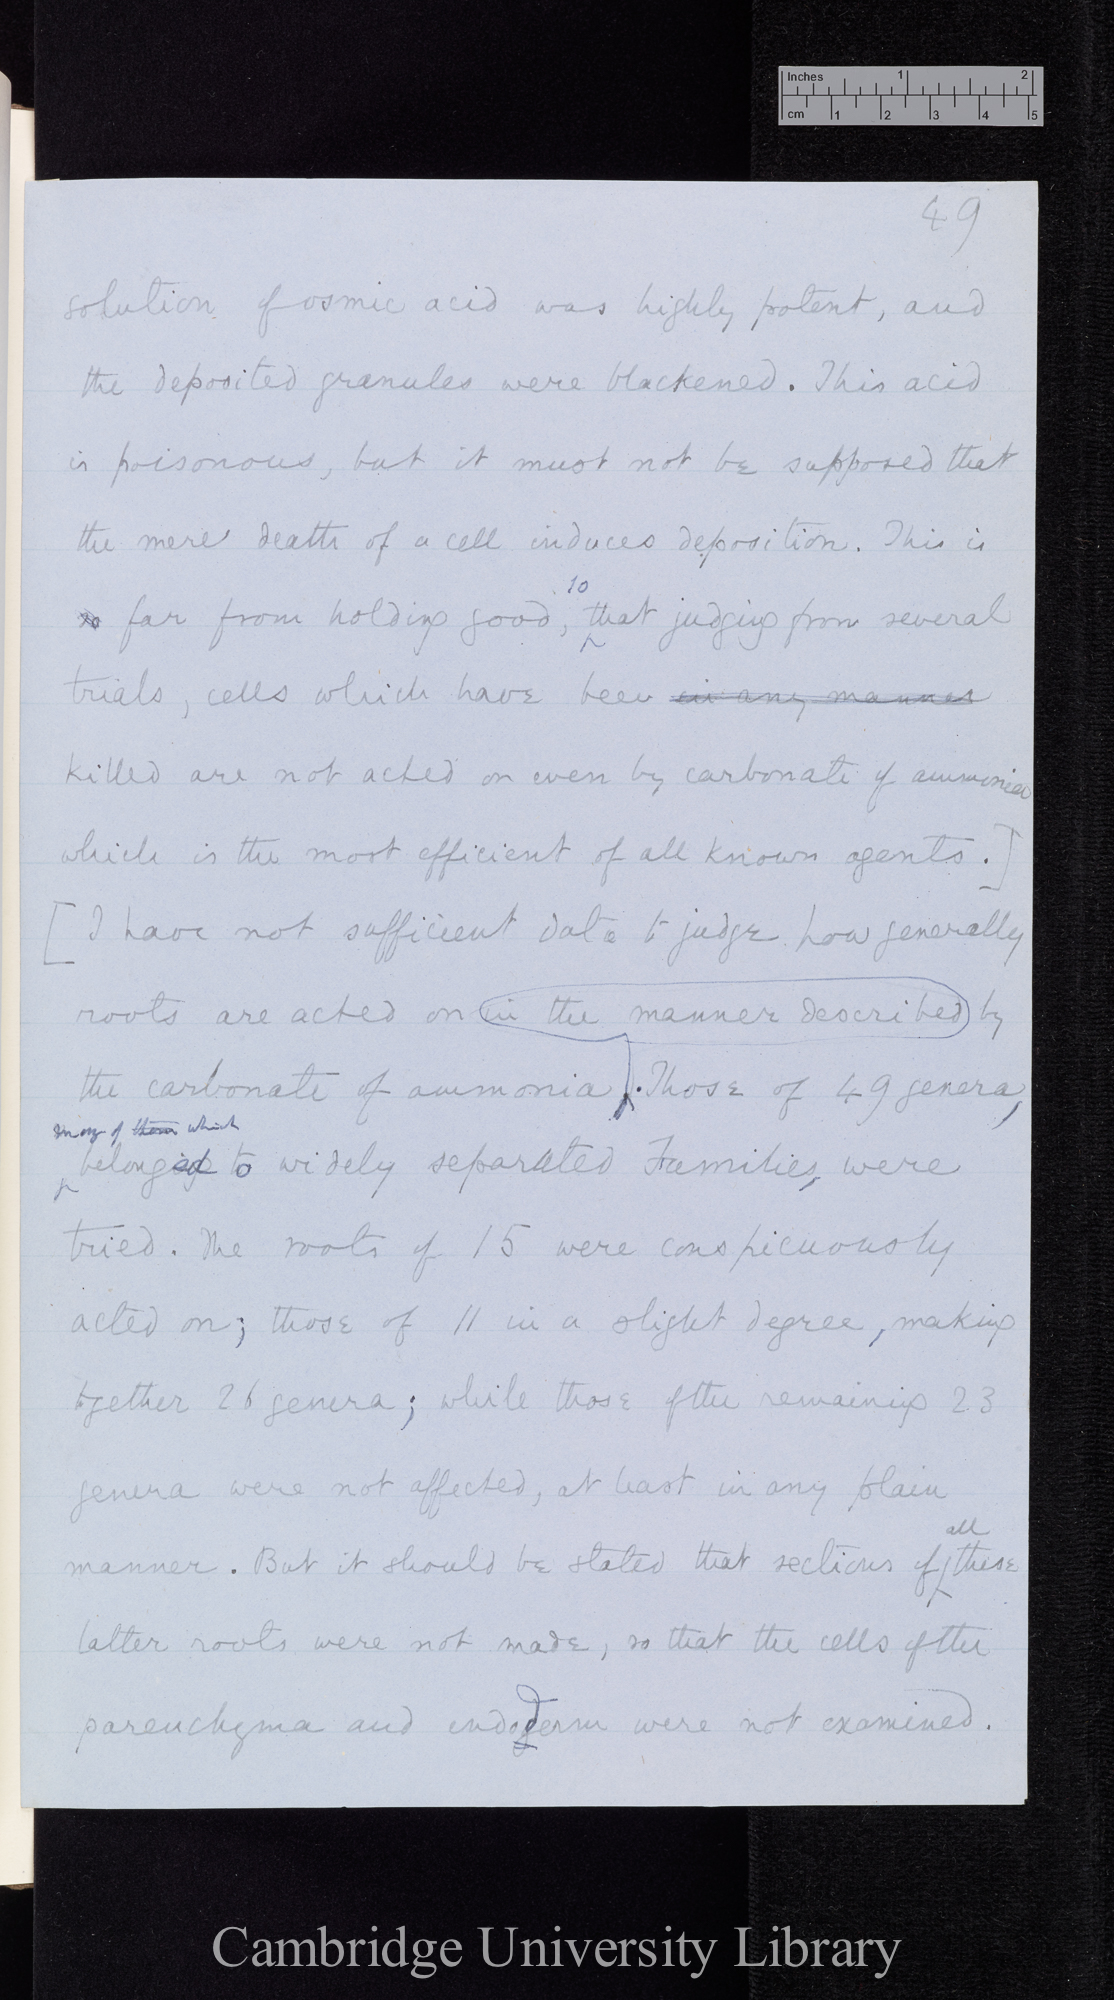 Inches 1 2
cm 1 2 3 4 5
49
solution of osmic acid was highly potent, and
the deposited granules were blackened. This acid
is poisonous, but it must not be supposed that
the mere death of a cell induces deposition. This is
so
so far from holding good, that judging from several
trials, cells which have been in any manner
killed are not acted on even by carbonate of ammonia
which is the most efficient of all known agents.]
[I have not sufficient data to judge how generally
roots are acted on in the manner described by
the carbonate of ammonia. Those of 49 genera,
many of them which
belong to widely separated Families, were
tried. The roots of 15 were conspicuously
acted on; those of 11 in a slight degree, making
together 26 genera; while those of the remaining 23
genera were not affected, at least in any plain
all
manner. But it should be stated that sections of these
latter roots were not made, so that the cells of the
parenchyma and endoderm were not examined.
Cambridge University Library